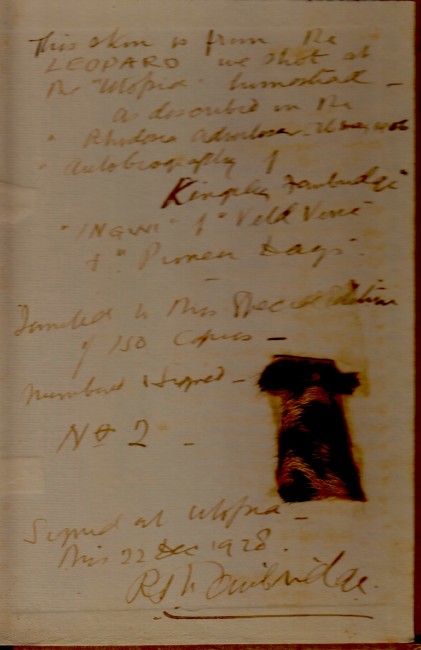 This skin is from the
LEOPARD we shot at
the "Utopia" homestead -
as described in the
" Rhodesia Advertiser.
" Autobiography of
Kingsley Fairbridge"
"INGWI" of "Veld Verse"
& "Pioneer Days".
Limited to this Special Edition
of 150 Copies -
Numbered & Signed -
No 2 -
Signed at Utopia -
this 22 Dec 1928.
Fairbridge.